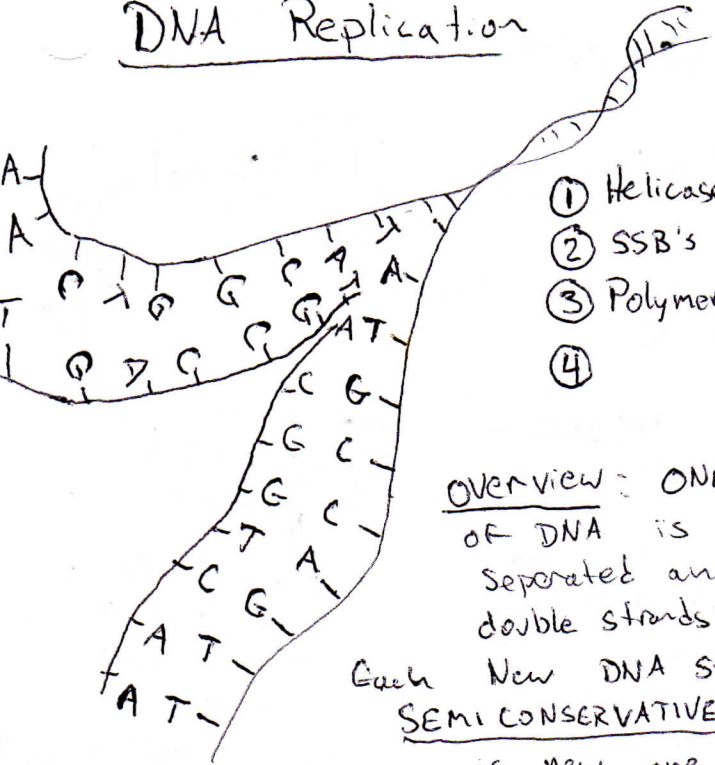 DNA Replication
A
A
① Helicase
② SSB's
③ Polymer
④
C T G G C A T A
T
A T
C G
G C
G C
T A
C G
A T
A T
Overview: ON
of DNA is
seperated an
double strands
Each New DNA S
SEMICONSERVATIVE